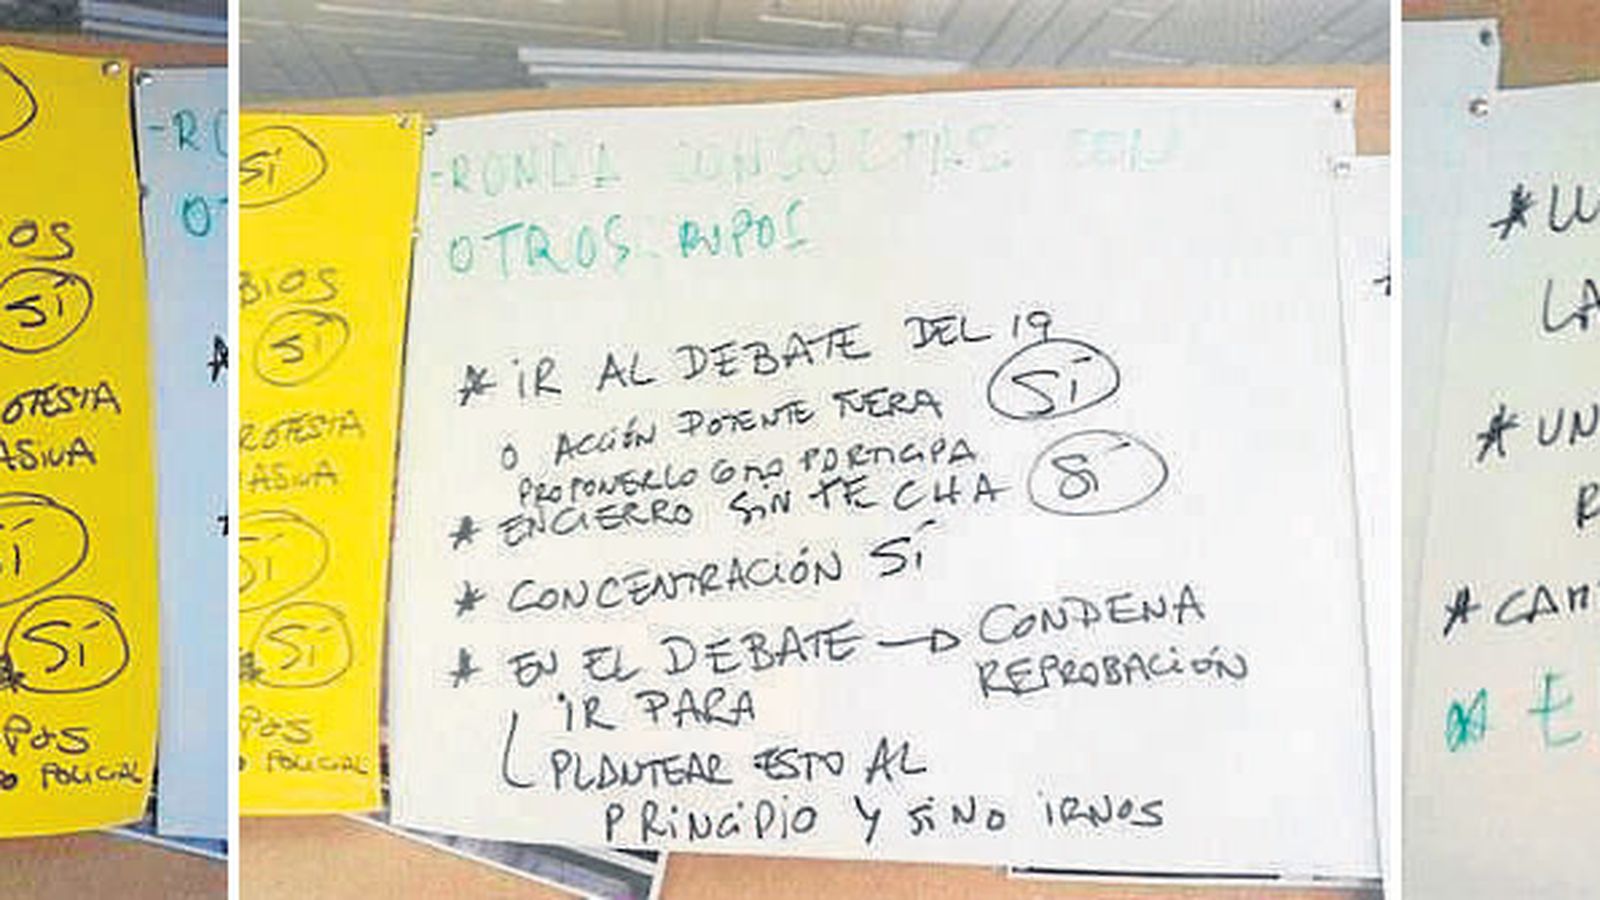 OS
SÍ
OTESTA
ASIVA
SÍ
POS
POLICIAL
OT
SÍ
BIOS
SÍ
ROTESTA
ASIVA
SÍ
SÍ
POS
POLICIAL
-RONDA
OTROS
* IR AL DEBATE DEL 19
SÍ
O ACCIÓN POTENTE FUERA
PROPONERLO COMO PARTICIPA
* ENCIERRO SIN FECHA SÍ
* CONCENTRACIÓN SÍ
* EN EL DEBATE → CONDENA
REPROBACIÓN
IR PARA
PLANTEAR ESTO AL
PRINCIPIO Y SINO IRNOS
* LU
LA
* UN
R
* CAM